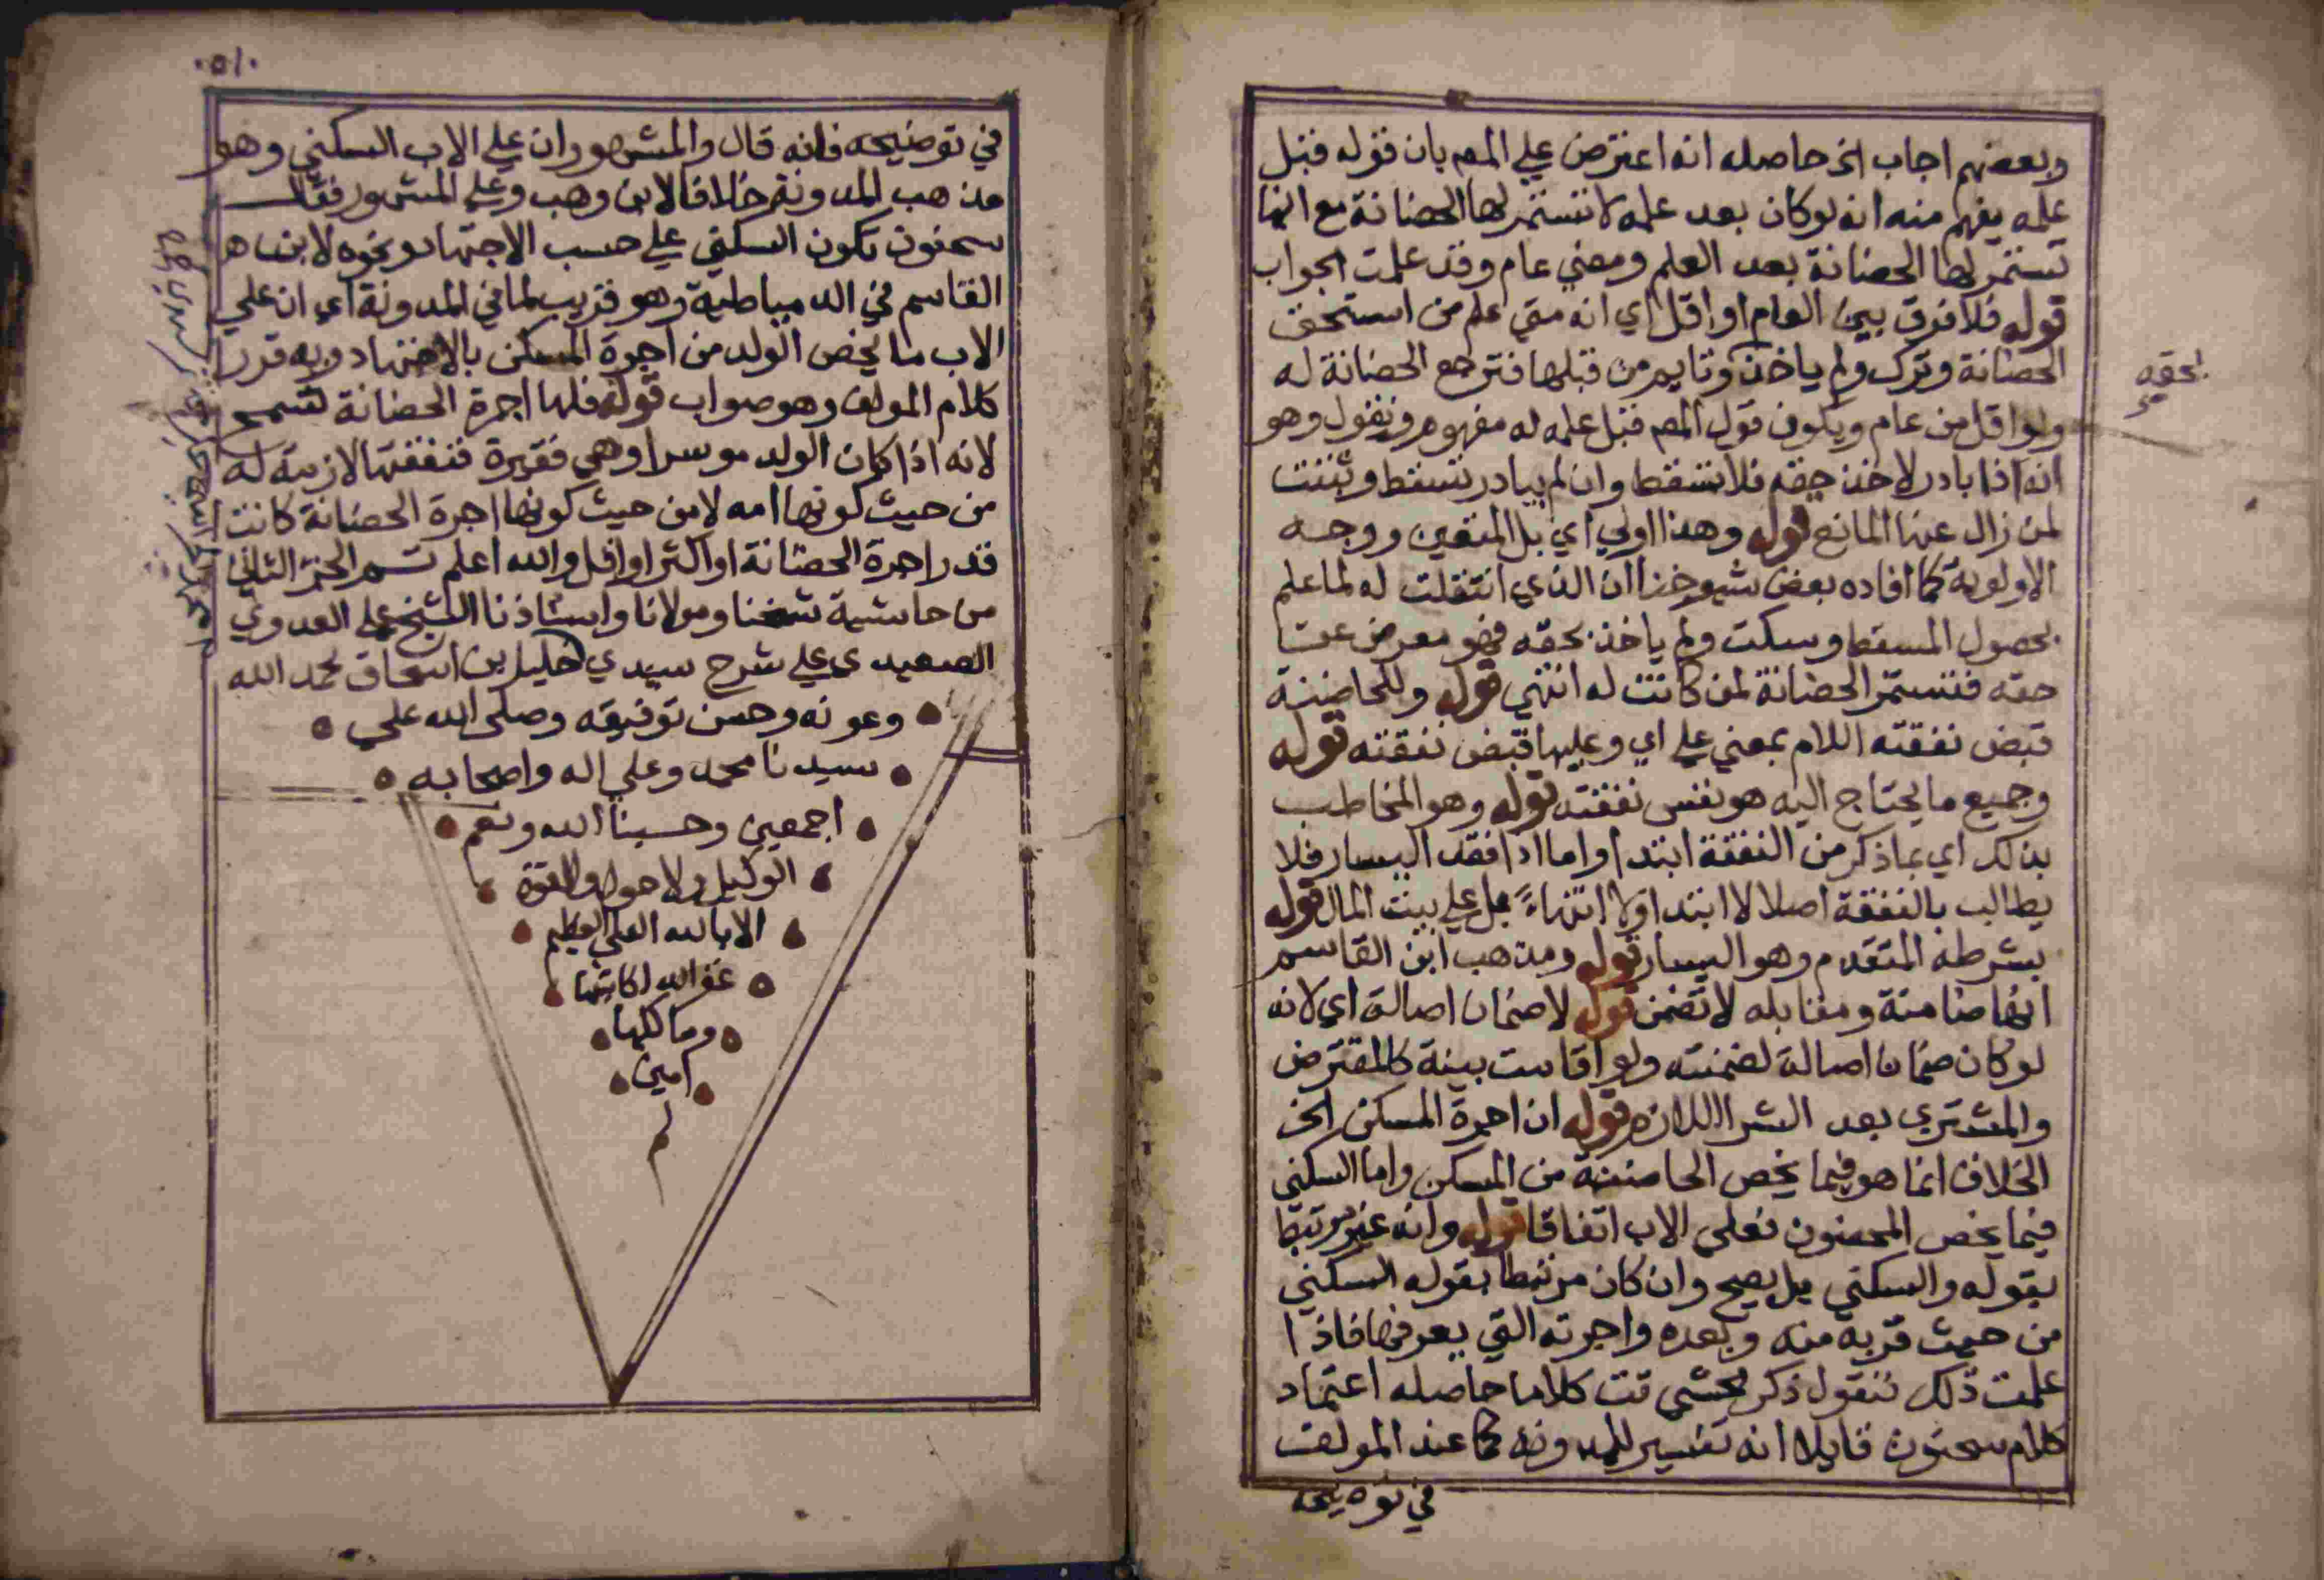 وبعضهم اجاب الخ حاصله انه اعترض علي المص بان قوله قبل
علمه يفهم منه انه لو كان بعد علمه لا تستمر لها الحضانة مع انها
تستمر لها الحضانة بعد العلم ومضي عام وقد علمت الجواب
قوله فلا فرق بين العام او اقل اي انه متي علم من استحق
الحضانة وترك ولم ياخذ وتايم من قبلها فترجع الحضانة له
بحقه
صح
ولو اقل من عام ويكون قول المص قبل علمه له مفهوم ونقول وهو
انه اذا بادر لاخذ حقه فلا تسقط وان لم يبادر تسقط وتثبت
لمن زال عنها المانع قوله وهذا اولي اي بل المتعين ووجه
الاولوية كما افاده بعض شيوخنا ان الذي انتقلت له لما علم
بحصول المسقط وسكت ولم ياخذ بحقه فهو معرض عن
حقه فتستمر الحضانة لمن كانت له انتهي قوله وللحاضنة
قبض نفقته اللام بمعني علي اي وعليها قبض نفقته قوله
وجميع ما يحتاج اليه هو نفس نفقته قوله وهو المخاطب
بذلك اي بما ذكر من النفقة ابتدا واما اذا فقد اليسار فلا
يطالب بالنفقة اصلا لا ابتدا ولا انتهاءً بل علي بيت المال قوله
بشرطه المتقدم وهو اليسار قوله ومذهب ابن القاسم
انها ضامنة ومقابله لا تضمن قوله لا ضمان اصالة اي لانه
لو كان ضمان اصالة لضمنته ولو اقامت بينة كالمقترض
والمشتري بعد الشرا اللازم قوله ان اجرة المسكن الخ
الخلاف انما هو فيما يخص الحاضنة من المسكن واما السكني
فيما يخص المحضون فعلي الاب اتفاقا قوله وانه غير مرتبط
بقوله والسكني بل يصح وان كان مرتبطا بقوله السكني
من حيث قربه منه وبعده واجرته التي يعرفها فاذا
علمت ذلك فنقول ذكر محشي تت كلاما حاصله اعتماد
كلام سحنون قايلا انه تفسير للمدونة كما عند المولف
في توضيحه
٥١٠
في توضيحه فانه قال والمشهور ان علي الاب السكني وهو
مذهب المدونة خلافا لابن وهب وعلي المشهور فقال
سحنون تكون السكني علي حسب الاجتهاد ونحوه لابن
القاسم في الدمياطية وهو قريب لما في المدونة اي ان علي
الاب ما يخص الولد من اجرة المسكن بالاجتهاد وبه قرر
كلام المولف وهو صواب قوله فلها اجرة الحضانة تسمح
لانه اذا كان الولد موسرا وهي فقيرة فنفقتها لازمة له
من حيث كونها امه لا من حيث كونها اجرة الحضانة كانت
قدر اجرة الحضانة او اكثر او اقل والله اعلم تم الجزء الثاني
من حاشية شيخنا ومولانا واستاذنا الشيخ علي العدوي
الصعيدي علي شرح سيدي خليل بن اسحاق بحمد الله
وعونه وحسن توفيقه وصلي الله علي
سيدنا محمد وعلي اله واصحابه
اجمعين وحسبنا الله ونعم
الوكيل ولا حول ولا قوة
الا بالله العلي العظيم
غفر الله لكاتبها
ومالكها
امين
م